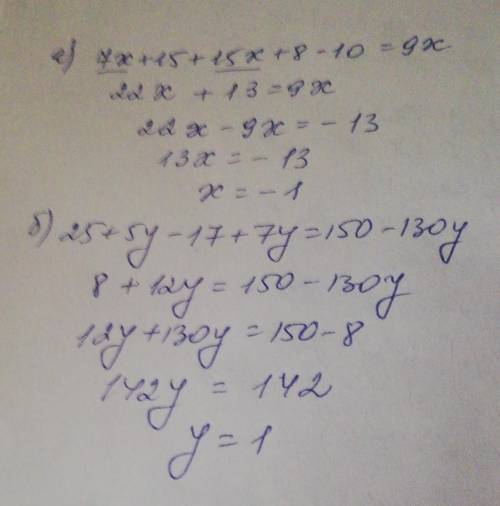 а) 7x+15+15x+8-10=9x
22x+13=9x
22x-9x=-13
13x=-13
x=-1
б) 25+5y-17+7y=150-130y
8+12y=150-130y
12y+130y=150-8
142y=142
y=1